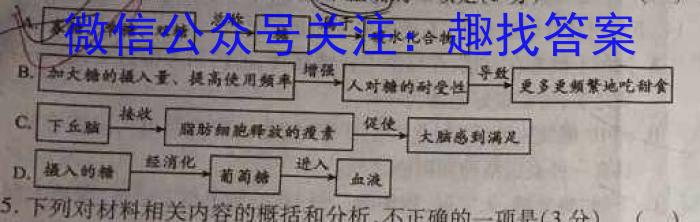 微信公众号关注：趣找答案
A.
B. 加大糖的摄入量、提高使用频率 增强 人对糖的耐受性 导致 更多更频繁地吃甜食
C. 下丘脑 接收 脂肪细胞释放的瘦素 促使 大脑感到满足
D. 摄入的糖 经消化 葡萄糖 进入 血液
5. 下列对材料相关内容的概括和分析,不正确的一项是(3分) ( )